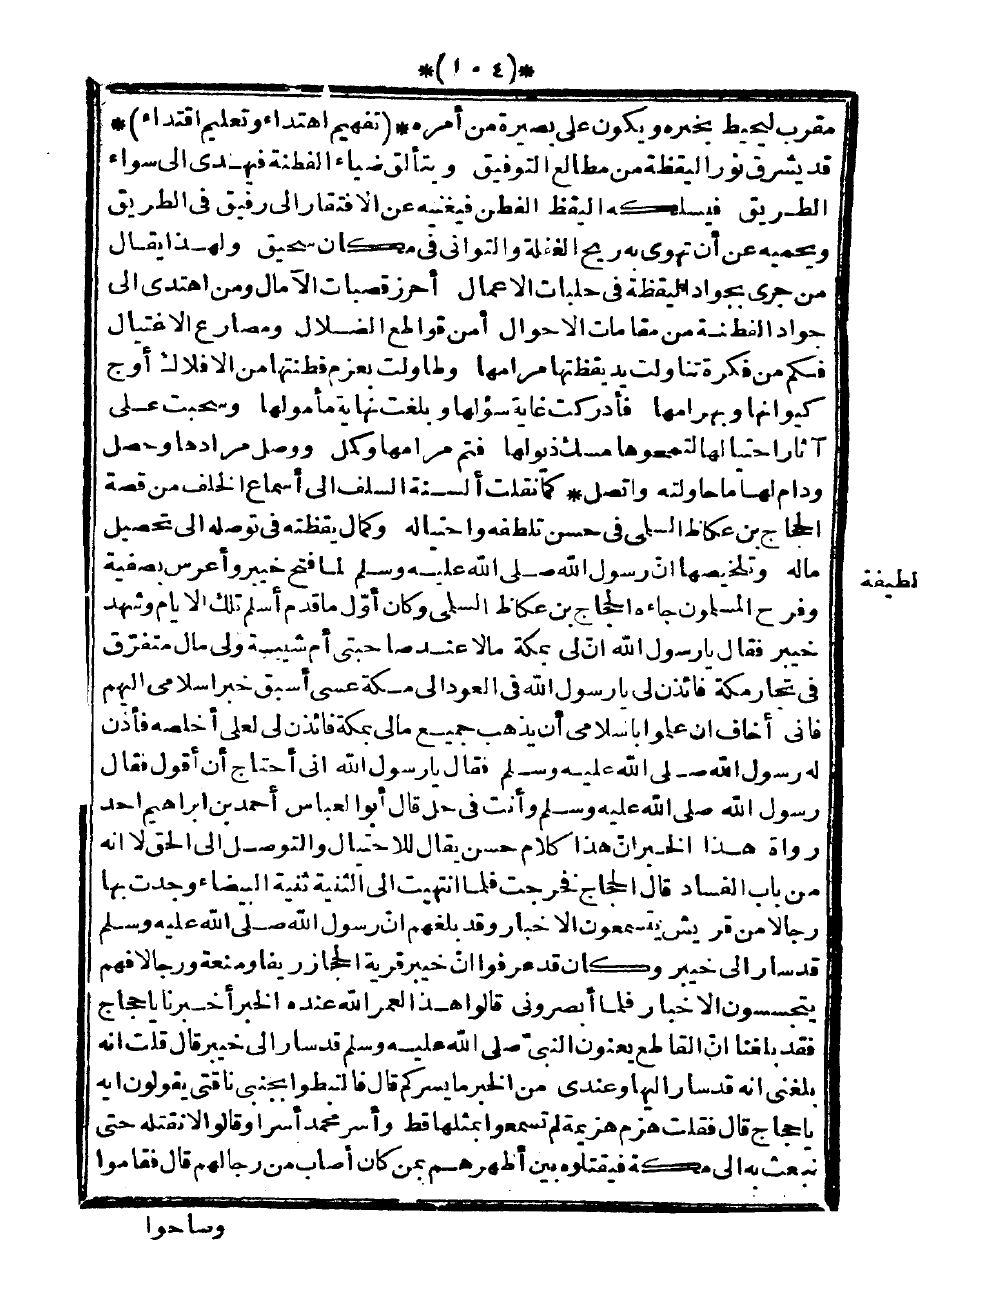 *(١٠٤)*
مقرب ليحيط بخبره ويكون على بصيرة من أمره *(تفهيم اهتداء وتعليم اقتداء)*
قد يشرق نور اليقظة من مطالع التوفيق ويتألق ضياء الفطنة فيهدى الى سواء
الطريق فيسلكه اليقظ الفطن فيغنيه عن الافتقار الى رفيق فى الطريق
ويحميه عن أن تهوى به ريح الغفلة والتوانى فى مكان سحيق ولهذا يقال
من جرى بجواد اليقظة فى حلبات الاعمال أحرز قصبات الآمال ومن اهتدى الى
جواد الفطنة من مقامات الاحوال أمن قواطع الضلال ومصارع الاختيال
فكم من فكرة تناولت بيد يقظتها مرامها وطاولت بعزم فطنتها من الافلاك أوج
كيوانها وبهرامها فأدركت غاية سؤلها وبلغت نهاية مأمولها وسحبت على
آثار احتيالها لتمحوها مسك ذيولها فتم مرامها وكمل ووصل مرادها وحصل
ودام لها ما حاولته واتصل * كما نقلت ألسنة السلف الى أسماع الخلف من قصة
الحجاج بن عكاظ السلمى فى حسن تلطفه واحتياله وكمال يقظته فى توصله الى تحصيل
ماله وتلخيصها انّ رسول الله صلى الله عليه وسلم لما فتح خيبر وأعرس بصفية
لطيفة
وفرح المسلمون جاءه الحجاج بن عكاظ السلمى وكان أوّل ما قدم أسلم تلك الايام وشهد
خيبر فقال يا رسول الله انّ لى بمكة مالا عند صاحبتى أم شيبة ولى مال متفرّق
فى تجار مكة فائذن لى يا رسول الله فى العود الى مكة عسى أسبق خبر اسلامى اليهم
فانى أخاف ان علموا باسلامى أن يذهب جميع مالى بمكة فائذن لى لعلى أخلصه فأذن
له رسول الله صلى الله عليه وسلم فقال يا رسول الله انى أحتاج أن أقول فقال
رسول الله صلى الله عليه وسلم وأنت فى حل قال أبو العباس أحمد بن ابراهيم احد
رواة هذا الخبر انّ هذا كلام حسن يقال للاحتيال والتوصل الى الحق لا انه
من باب الفساد قال الحجاج فخرجت فلما انتهيت الى الثنية ثنية البيضاء وجدت بها
رجالا من قريش يتسمعون الاخبار وقد بلغهم انّ رسول الله صلى الله عليه وسلم
قد سار الى خيبر وكان قد عرفوا انّ خيبر قرية الحجاز ريفا ومنعة ورجالا فهم
يتجسسون الاخبار فلما أبصرونى قالوا هذا لعمر الله عنده الخبر أخبرنا يا حجاج
فقد بلغنا انّ القاطع يعنون النبىّ صلى الله عليه وسلم قد سار الى خيبر قال قلت انه
بلغنى انه قد سار اليها وعندى من الخبر ما يسركم قال فالتبطوا بجنبى ناقتى يقولون ايه
يا حجاج قال فقلت هزم هزيمة لم تسمعوا بمثلها قط وأسر محمد أسرا وقالوا لا نقتله حتى
نبعث به الى مكة فيقتلوه بين أظهرهم بمن كان أصاب من رجالهم قال فقاموا
وصاحوا